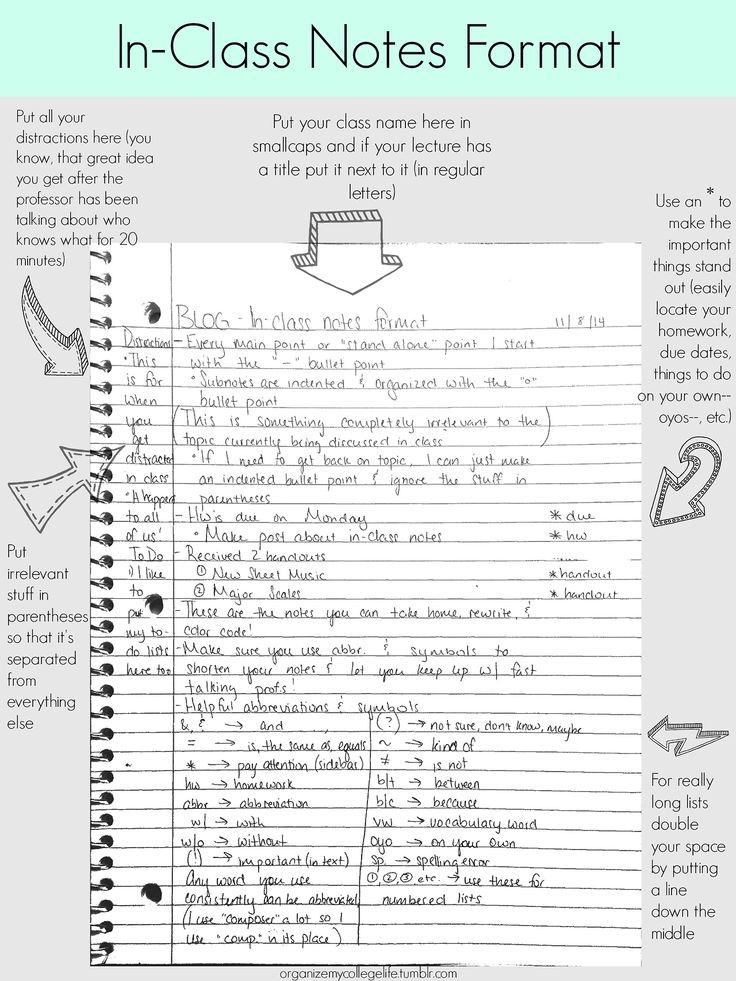 In-Class Notes Format
Put all your
distractions here (you
know, that great idea
you get after the
professor has been
talking about who
knows what for 20
minutes)
Put your class name here in
smallcaps and if your lecture has
a title put it next to it (in regular
letters)
Use an * to
make the
important
things stand
out (easily
locate your
homework,
due dates,
things to do
on your own--
oyos--, etc.)
BLOG - In-class notes format 11/8/14
Distractions
• This
is for
when
you
get
distracted
in class
• It happens
to all
of us!
To Do
1) I like
to
put
my to-
do lists
here too
- Every main point or "stand alone" point I start
with the "-" bullet point
° Subnotes are indented & organized with the "o"
bullet point
(This is something completely irrelevant to the
topic currently being discussed in class)
° If I need to get back on topic, I can just make
an indented bullet point & ignore the stuff in
parentheses
- HW is due on Monday * due
° Make post about in-class notes * hw
- Received 2 handouts
① New Sheet Music * handout
② Major Scales * handout
- These are the notes you can take home, rewrite, &
color code!
- Make sure you use abbr. & symbols to
shorten your notes & let you keep up w/ fast
talking profs!
- Helpful abbreviations & symbols
&, & → and
= → is, the same as, equals
* → pay attention (sidebar)
hw → homework
abbr → abbreviation
w/ → with
w/o → without
(!) → important (in text)
Any word you use
consistently can be abbreviated
(I use "composer" a lot so I
use "comp." in its place)
(?) → not sure, don't know, maybe
~ → kind of
≠ → is not
b/t → between
b/c → because
vw → vocabulary word
oyo → on your own
sp. → spelling error
①,②,③ etc. → use these for
numbered lists
Put
irrelevant
stuff in
parentheses
so that it's
separated
from
everything
else
For really
long lists
double
your space
by putting
a line
down the
middle
organizemycollegelife.tumblr.com